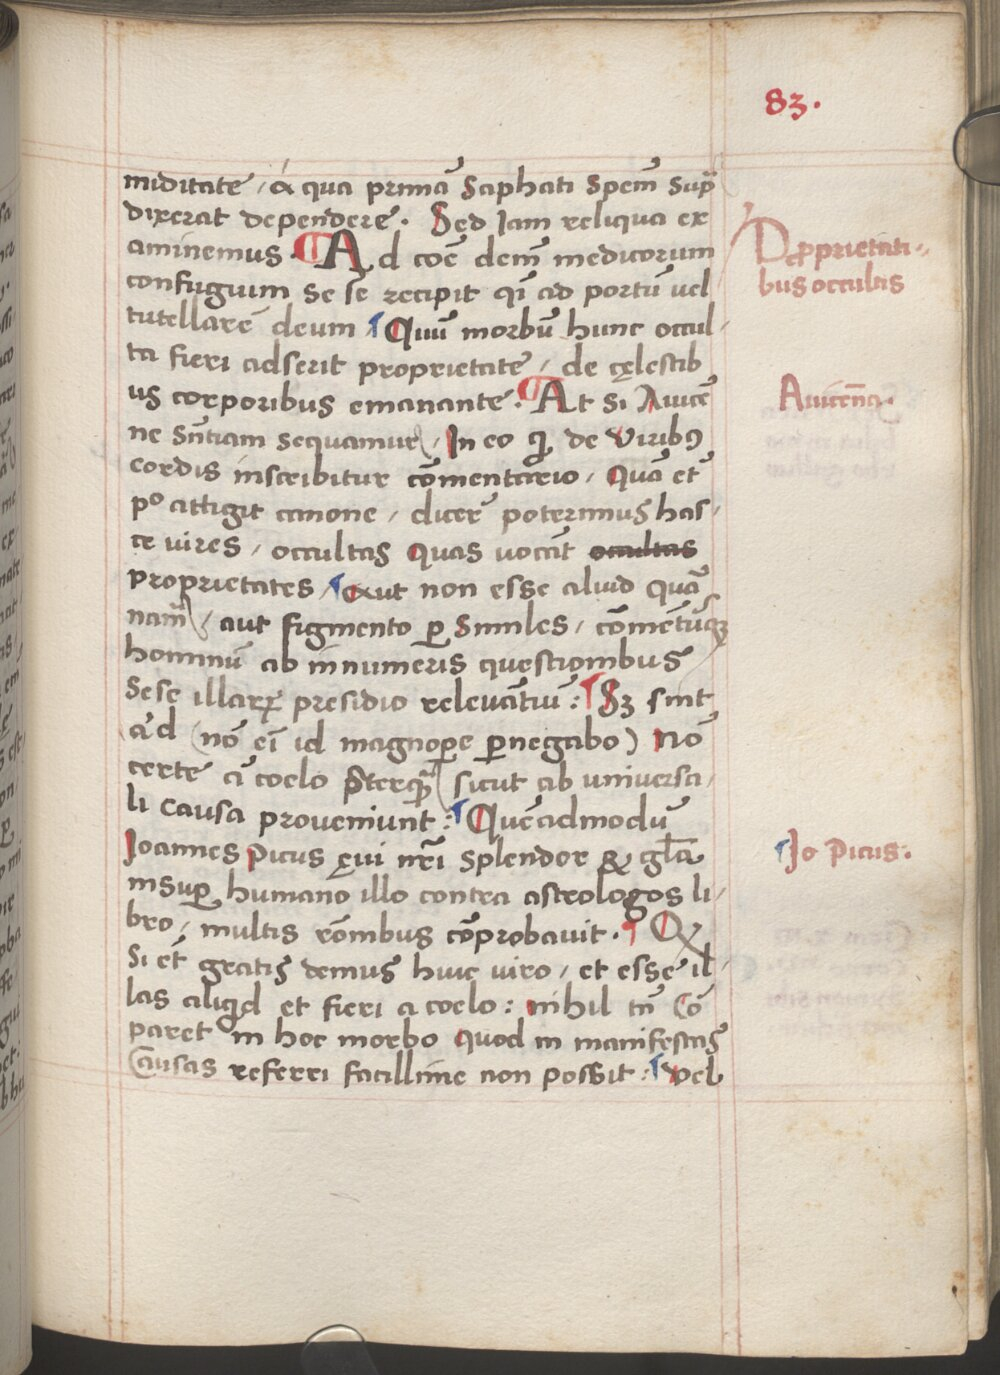 83.
miditate, a qua primā Saphati Spem̄ Sup̄
dixerat dependere. Sed Iam reliqua ex
aminemus. Ad coē dem̄ medicorum
confugium se se recipit qi᷄ ad portū vel
tutellarē deum, Quū morbū hunc occul-
ta fieri adserit proprietate, de cęlestib
us corporibus emanante. At Si Avicē
ne Sn̄tiam sequamur, In eo q̄ de viribꝰ
cordis inscribitur cōmentario, Quā et
pº attigit canone, dicer̄ poterimus has-
ce vires, occultas quas vocāt occultas
proprietates, Aut non esse aliud quā
nam̄, aut figmento ꝑ Similes, cōmētūqꝫ
hominū ab innumeris questionibus
Sese illarꝝ presidio relevātiū: Sꝫ sint
a'd (nō ei᷄ id magnopere ꝑnegabo) Nō
certe a coelo p̄terq̄ sicut ab universa-
li causa proveniunt: Quēadmodū
Ioannes Picus ęvi nr̄i Splendor & gl̄a
insuꝑ humano illo contra astrologos li-
bro, multis rōnibus cōprobavit. Qꝫ
Si et̄ gratis demus huic viro, et esse il-
las aliqd et fieri a coelo: nihil tn̄ Cō
paret in hoc morbo quod in manifestas
causas referri facillime non possit: vel
De ꝓprietati-
bus occultis
Avicēna.
Jo Picus.